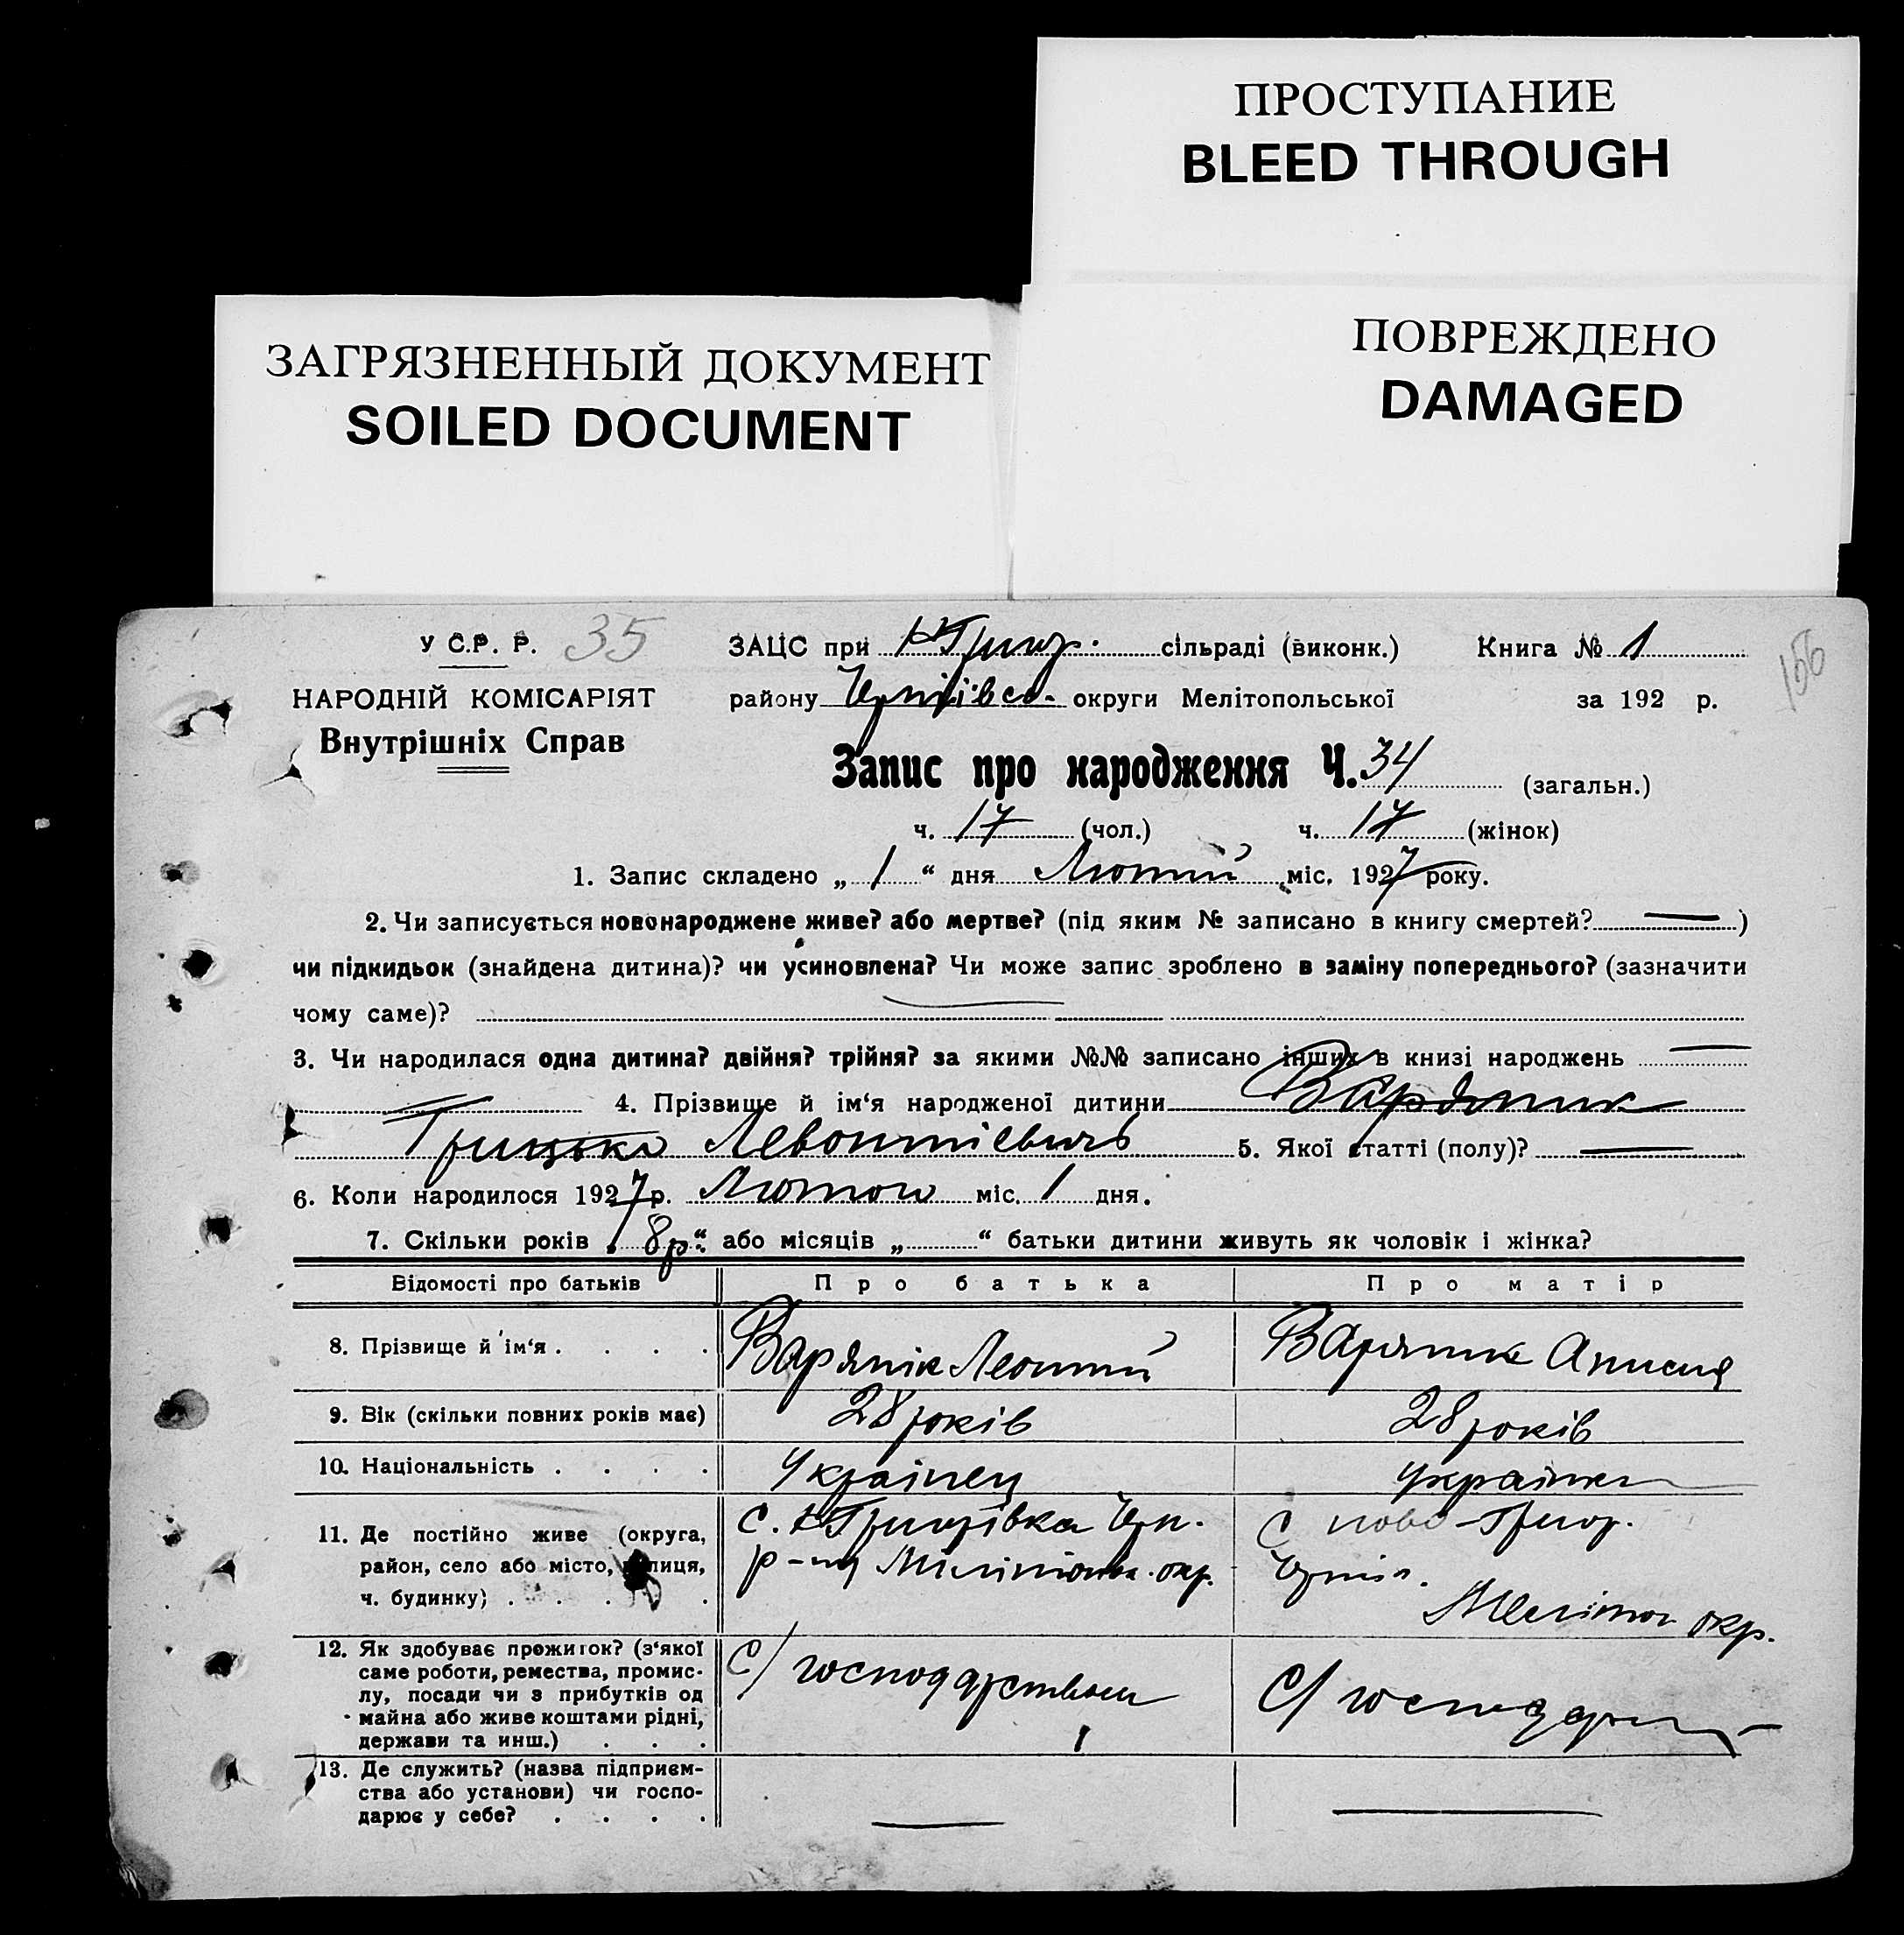 ПРОСТУПАНИЕ
BLEED THROUGH
ЗАГРЯЗНЕННЫЙ ДОКУМЕНТ
SOILED DOCUMENT
ПОВРЕЖДЕНО
DAMAGED
У С.Р. Р. 35 ЗАЦС при сільраді (виконк.) Книга № 1
156
НАРОДНІЙ КОМІСАРІЯТ району округи Мелітопольської за 192 р.
Внутрішніх Справ
Запис про народження Ч. 34 (загальн.)
ч. 17 (чол.) ч. 17 (жінок)
1. Запис складено „ 1 “ дня Лютий міс. 1927 року.
2. Чи записується новонароджене живе? або мертве? (під яким № записано в книгу смертей? — )
чи підкидьок (знайдена дитина)? чи усиновлена? Чи може запис зроблено в заміну попереднього? (зазначити
чому саме)? —
3. Чи народилася одна дитина? двійня? трійня? за якими №№ записано інших в книзі народжень —
— 4. Прізвище й ім‘я народженої дитини
Грицько Левонтієвичь 5. Якої статті (полу)? —
6. Коли народилося 1927 р. Лютого міс. 1 дня.
7. Скільки років „ 8 р “ або місяців „ “ батьки дитини живуть як чоловік і жінка?
Відомості про батьків Про батька Про матір
8. Прізвище й ім‘я . . . . Варянік Леонтій Варяник Анисия
9. Вік (скільки повних років має) 28 років 28 років
10. Національність . . . . Українец українка
11. Де постійно живе (округа, с. Григорівка Черн. с ново-Григор.
район, село або місто, вулиця, р-ну окр.
ч. будинку) . . . . . окр.
12. Як здобуває прожиток? (з‘якої
саме роботи, ремества, промис- С/господарством С/господар
лу, посади чи з прибутків од
майна або живе коштами рідні,
держави та инш.) . . .
13. Де служить? (назва підприєм-
ства або установи) чи госпо-
дарює у себе? . . . . — —